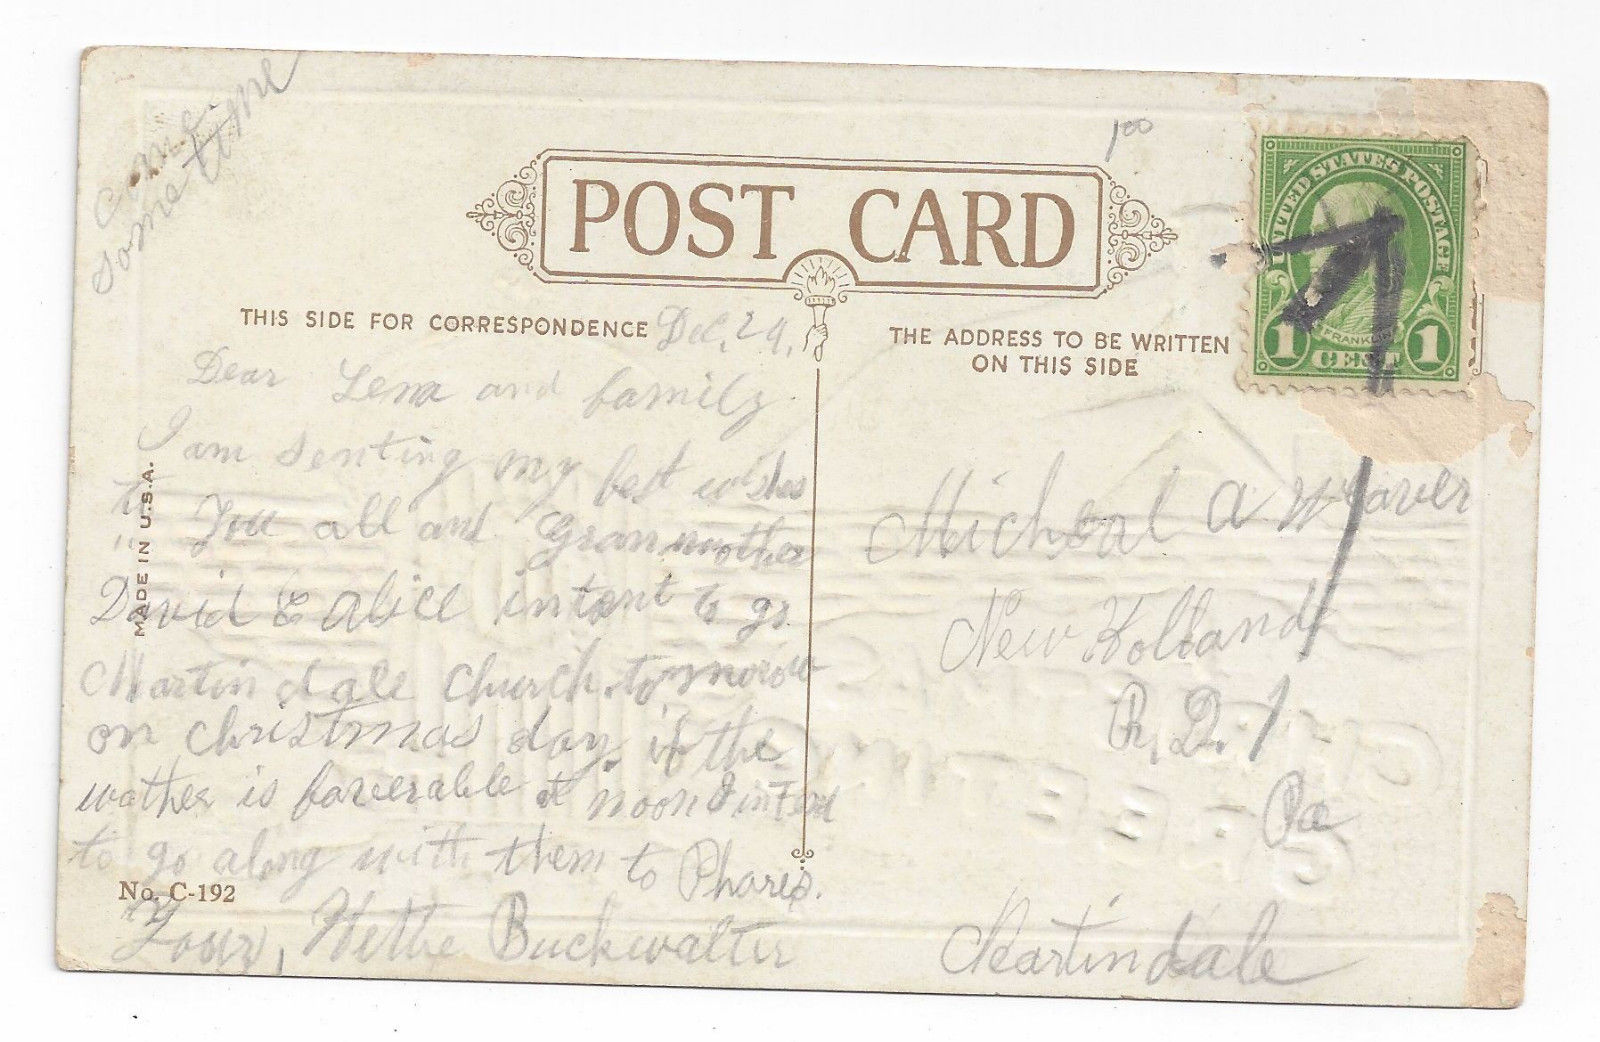 come
some time
100
POST CARD
UNITED STATES POSTAGE
FRANKLIN
1 CENT 1
THIS SIDE FOR CORRESPONDENCE
Dec. 24.
THE ADDRESS TO BE WRITTEN
ON THIS SIDE
MADE IN U.S.A.
Dear Lena and family
I am senting my best wishes
to You all and Granmother
David & Alice intent to go
Martindale Church tomorrow
on christmas day. if the
wather is faverable at noon I intend
to go along with them to Phares.
Your, Hettie Buckwalter
No. C-192
Micheal A Weaver
New Holland
R. D. 1
Pa
Martindale